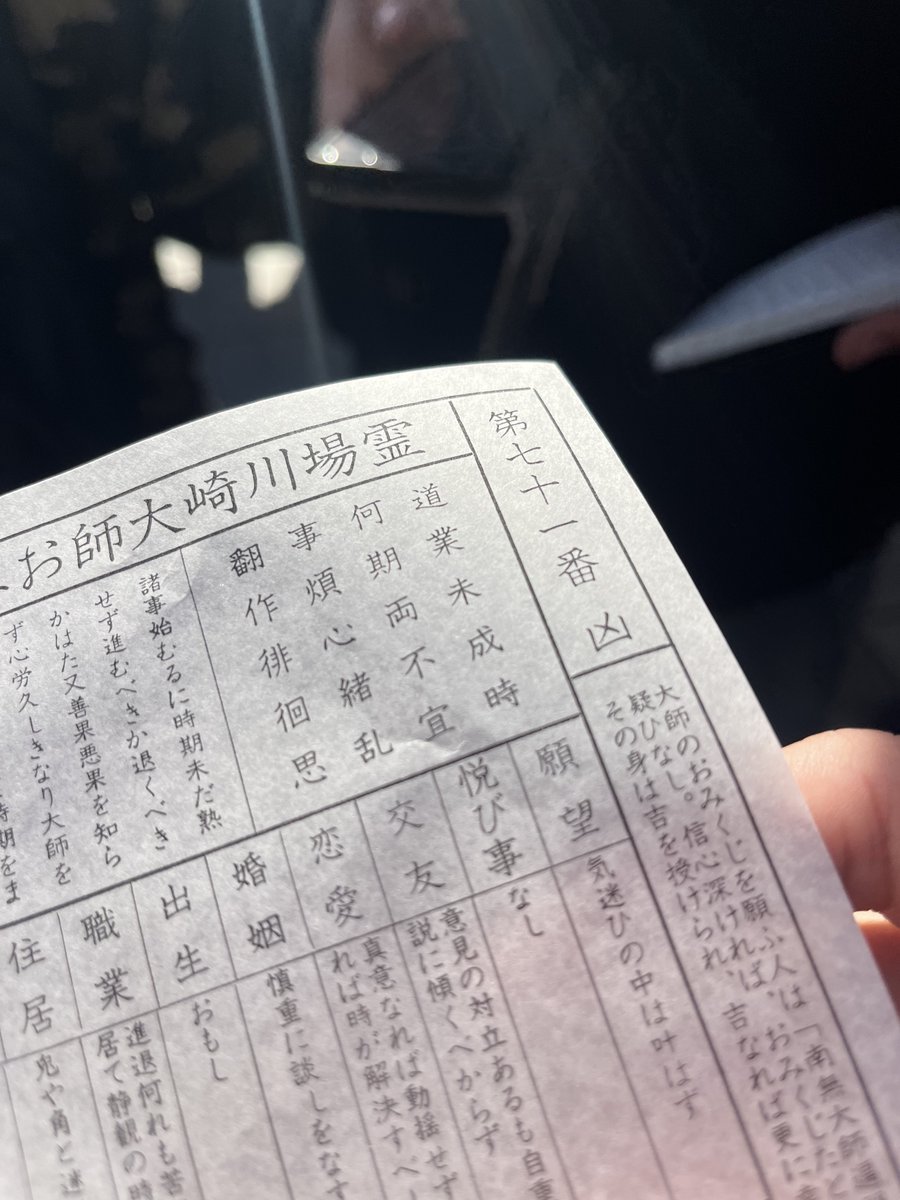 第七十一番 凶
大師のおみくじを願ふ人は「南無大師遍
疑ひなし。信心深ければ、おみくじたと
その身は吉を授けられ、吉なれば更に
霊場川崎大師お
道業未成時
何期両不宜
事煩心緒乱
翻作徘徊思
諸事始むるに時期未だ熟
せず進むべきか退くべき
かはた又善果悪果を知ら
ず心労久しきなり大師を
時期をま
願望
気迷ひの中は叶はず
悦び事
なし
交友
意見の対立あるも自重
説に傾くべからず
恋愛
真意なれば動揺せず
れば時が解決すべし
婚姻
慎重に談しをなす
出生
おもし
職業
進退何れも苦
居て静観の時
住居
兎や角と迷